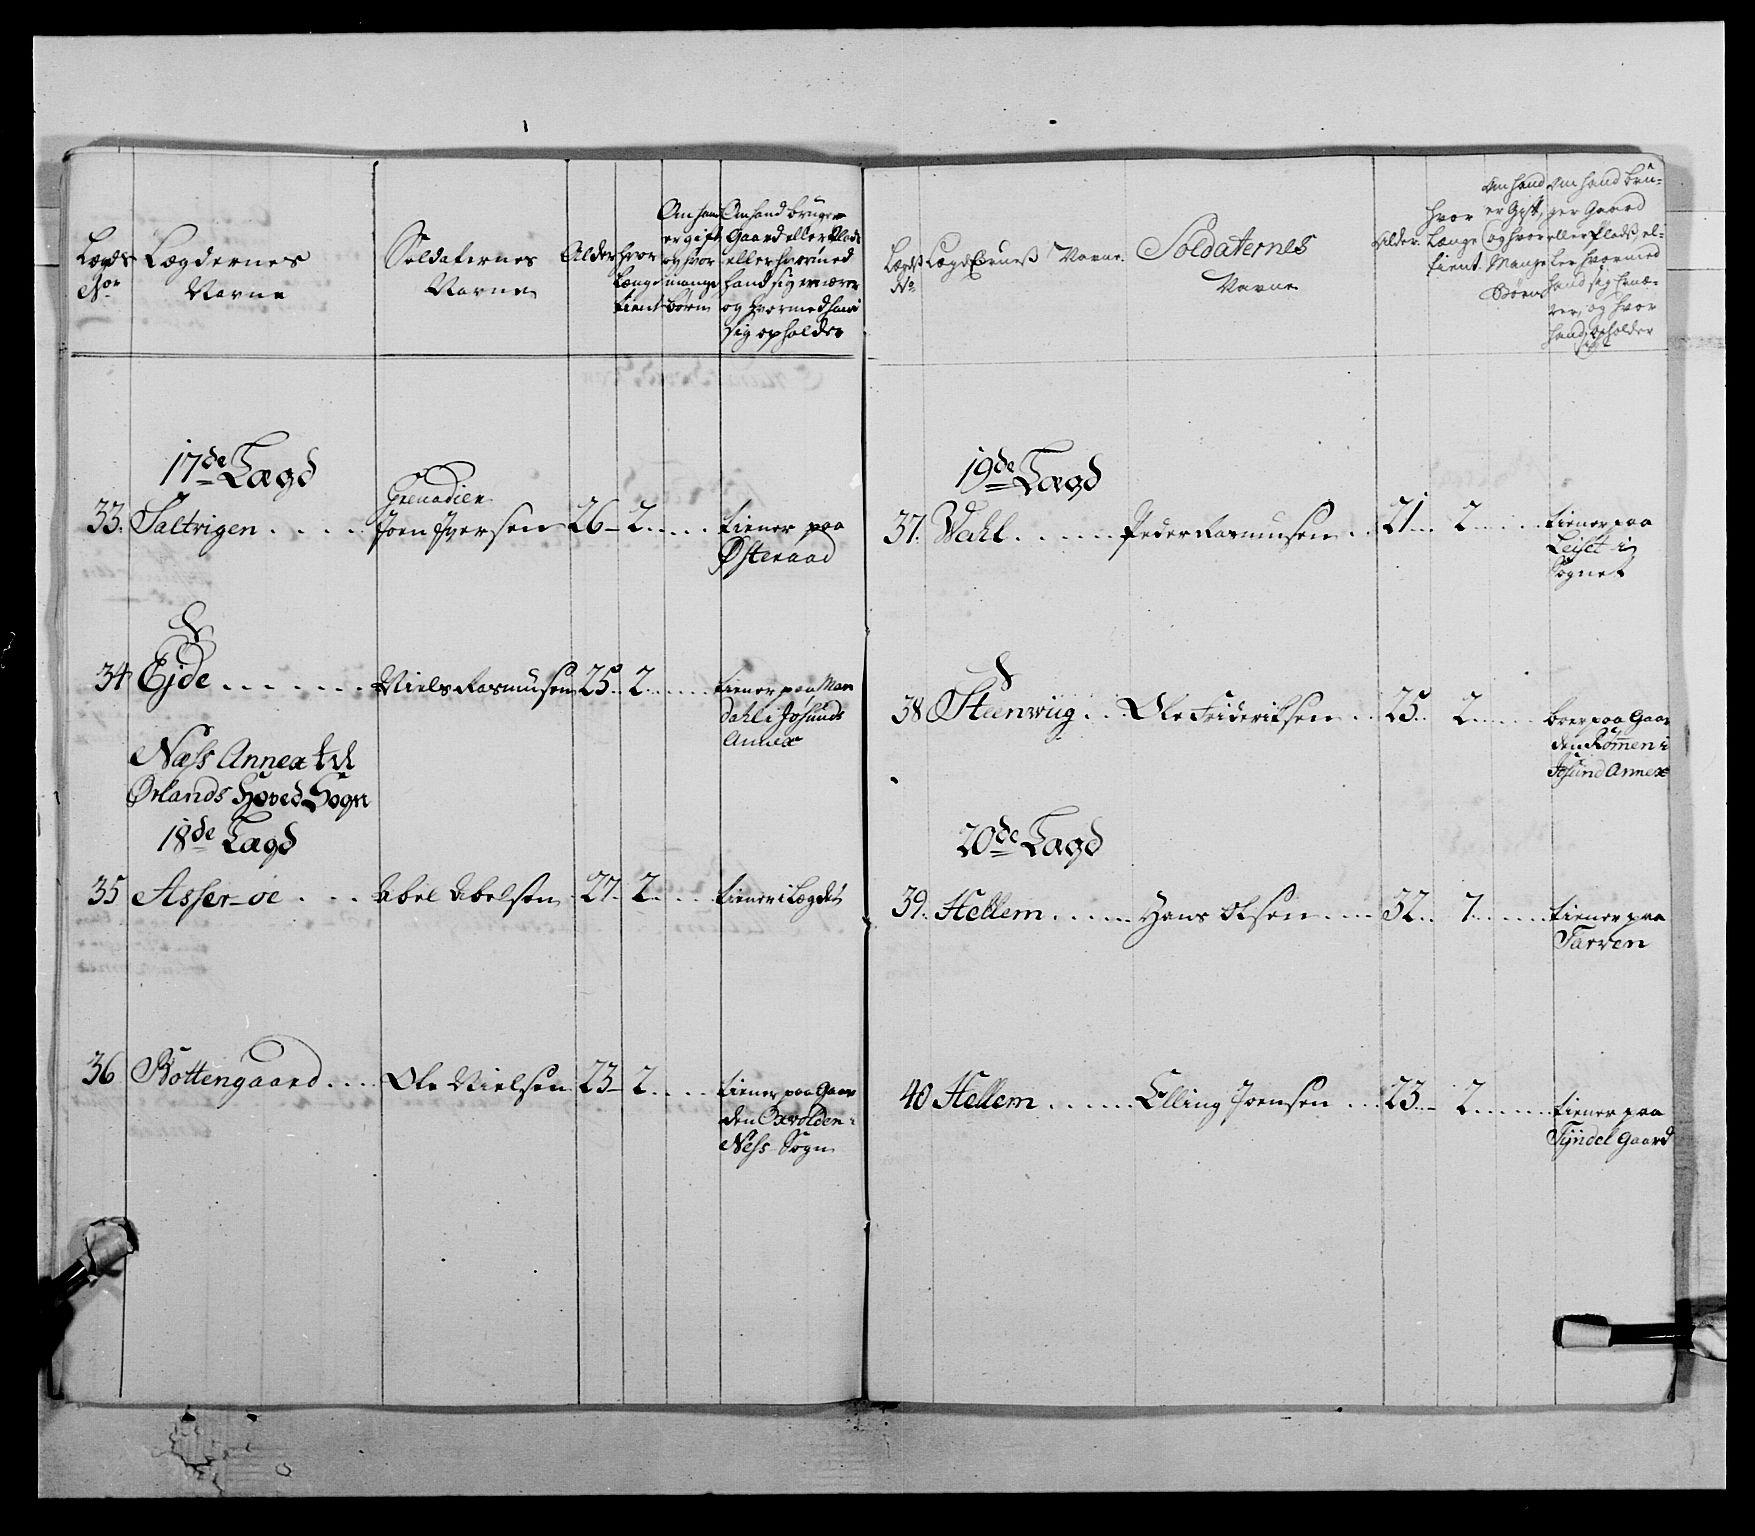 Lægds Nor
Lægdernes Navne
Soldaternes Navne
Alder
hvor Længe tient
Om hand er gift og hvor mange børn
Om hand bruger Gaard eller Plads eller hvormed hand sig ernærer og hvormed hand sig opholder
17de Lægd
Grenadier
33. Saltrigen . . . . Joen Iversen 26 – 2 . . . . tiener paa
Østeraad
34 Ejde . . . . . . Niels Rasmusen 25 . . 2 . . . . . tiener paa Man
dahl i Jøsunds
Annex
Næss Annex til
Ørlands Hoved Sogn
18de Lægd
35 Asser-øe . . . . Abel Abelsen . 27 . 2 . . . . tiener i Lægdet
36 Bottengaard . . . Ole Nielsen 23 – 2 . . . . tiener paa Gaar
den Oxvolden i
Ness Sogn
Lægds No
Lægderness Navne
Soldaternes Navne
Alder
hvor Længe tient
Om hand er Gift, og hvor Mange Børn
Om hand brü-
ger Gaard
eller Plads, el-
ler hvormed
hand sig ernæ-
rer, og hvor
hand opholder
sig
19de Lægd
37. Wahl . . . . . . Peder Rasmusen . . 21 . . . 2 . . . . . tiener paa
Leiset i
Sognet
38 Steenwiig . . . Ole Friderichsen . . 25 . . 2 . . . . . boer paa Gaar
den Rømmen i
Jøsund Annex
20de Lægd
39. Hellem . . . . . . Hans Olsen . . . . 32 . . 7 . . . . . . tiener paa
Tarven
40 Hellem . . . . . . Elling Joensen . . . 23 . . – 2 . . . . . . tiener paa
Tÿndel Gaard